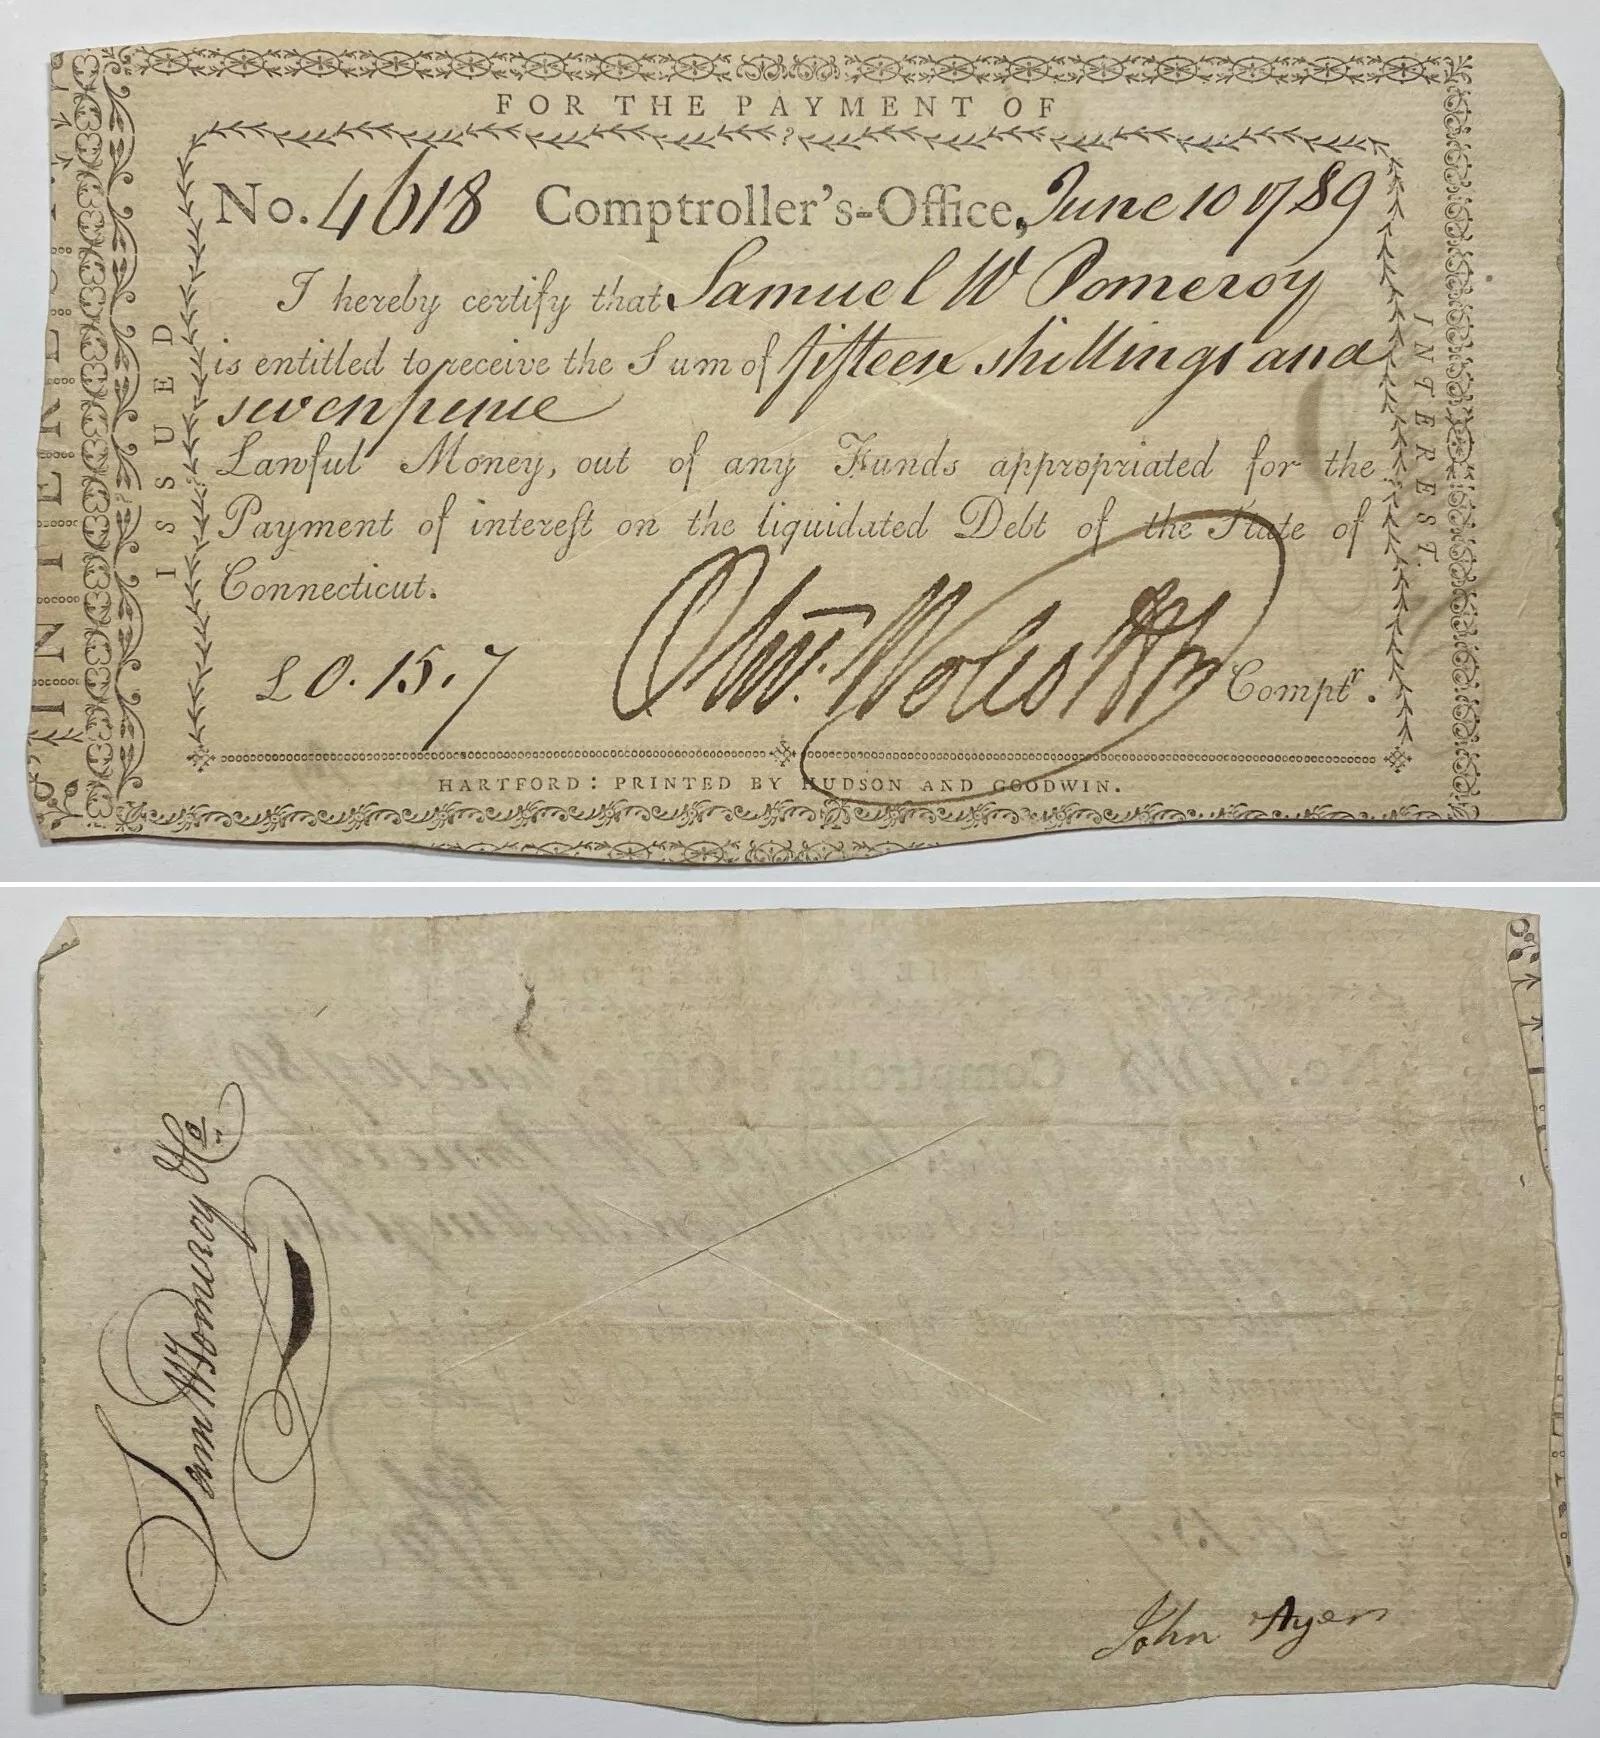 FOR THE PAYMENT OF
INTEREST
ISSUED
INTEREST.
No. 4618 Comptroller's-Office, June 10 1789
I hereby certify that Samuel W Pomeroy
is entitled to receive the Sum of fifteen shillings and
seven pence
Lawful Money, out of any Funds appropriated for the
Payment of intereſt on the liquidated Debt of the State of
Connecticut.
£0.15.7 Olivr. Wolcott Jr Comptr.
HARTFORD: PRINTED BY HUDSON AND GOODWIN.
Sam W Pomeroy & Co.
John Ayers